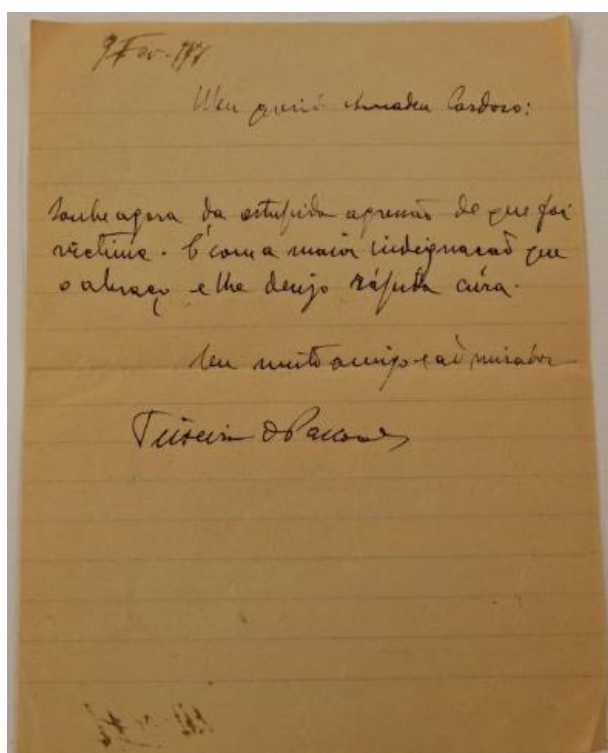 Meu querido Amadeu Cardoso:
Soube agora da estupida agressão de que foi
victima. É com a maior indignação que
o abraço e lhe desejo rápida cúra.
seu muito amigo e admirador
Teixeira de Pascoaes